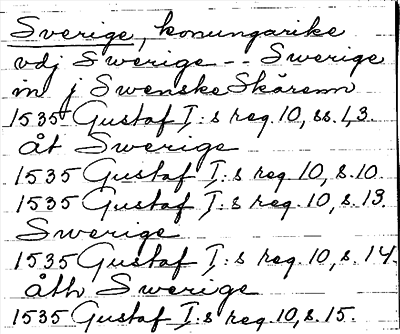 Sverige, konungarike
vdj Swerige -- Swerige
in j Swenske Skären
1535 Gustaf I:s reg. 10, ss. 1, 3.
åt Swerige
1535 Gustaf I:s reg. 10, s. 10.
1535 Gustaf I:s reg. 10, s. 13.
Swerige
1535 Gustaf I:s reg. 10, s. 14.
åth Swerige
1535 Gustaf I:s reg. 10, s. 15.